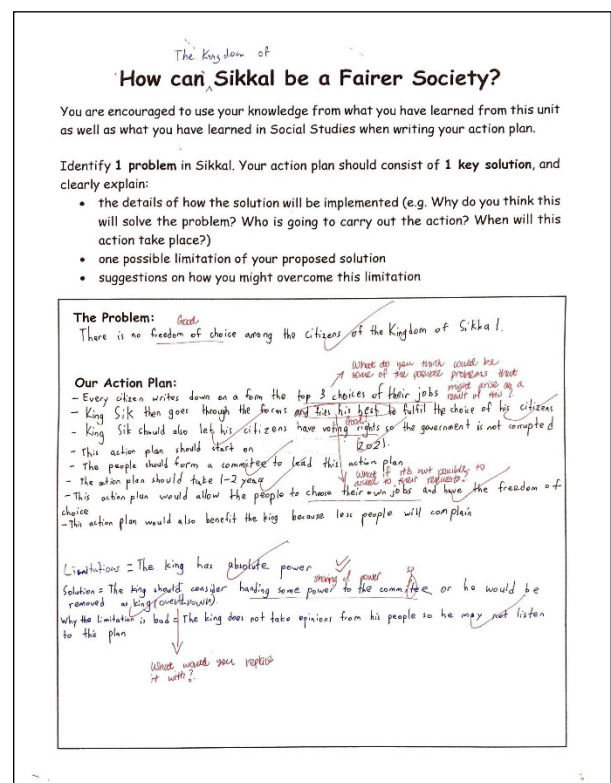 The Kingdom of
How can Sikkal be a Fairer Society?
You are encouraged to use your knowledge from what you have learned from this unit
as well as what you have learned in Social Studies when writing your action plan.
Identify 1 problem in Sikkal. Your action plan should consist of 1 key solution, and
clearly explain:
• the details of how the solution will be implemented (e.g. Why do you think this
will solve the problem? Who is going to carry out the action? When will this
action take place?)
• one possible limitation of your proposed solution
• suggestions on how you might overcome this limitation
The Problem:
Good
There is no freedom of choice among the citizens of the Kingdom of Sikkal.
What do you think could be
some of the possible problems that
might arise as a
result of this?
Our Action Plan:
- Every citizen writes down on a form the top 3 choices of their jobs
- King Sik then goes through the forms and tries his best to fulfil the choice of his citizens
Good!
- King Sik should also let his citizens have voting rights so the government is not corrupted
- This action plan should start on 2021.
- The people should form a committee to lead this action plan
What if it's not possible to
accede to their requests?
- The action plan should take 1-2 years
- This action plan would allow the people to choose their own jobs and have the freedom of
choice
- This action plan would also benefit the king because less people will complain
Limitations = The king has absolute power
sharing of power
Solution = The king should consider handing some power to the committee or he would be
removed as king (overthrown).
Why the limitation is bad = The king does not take opinions from his people so he may not listen
to this plan
What would you replace
it with?